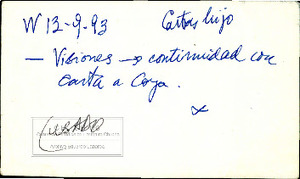 W 13-9-93 Cartas hijo
— Visiones → continuidad con
carta a Goya.
x
USADO